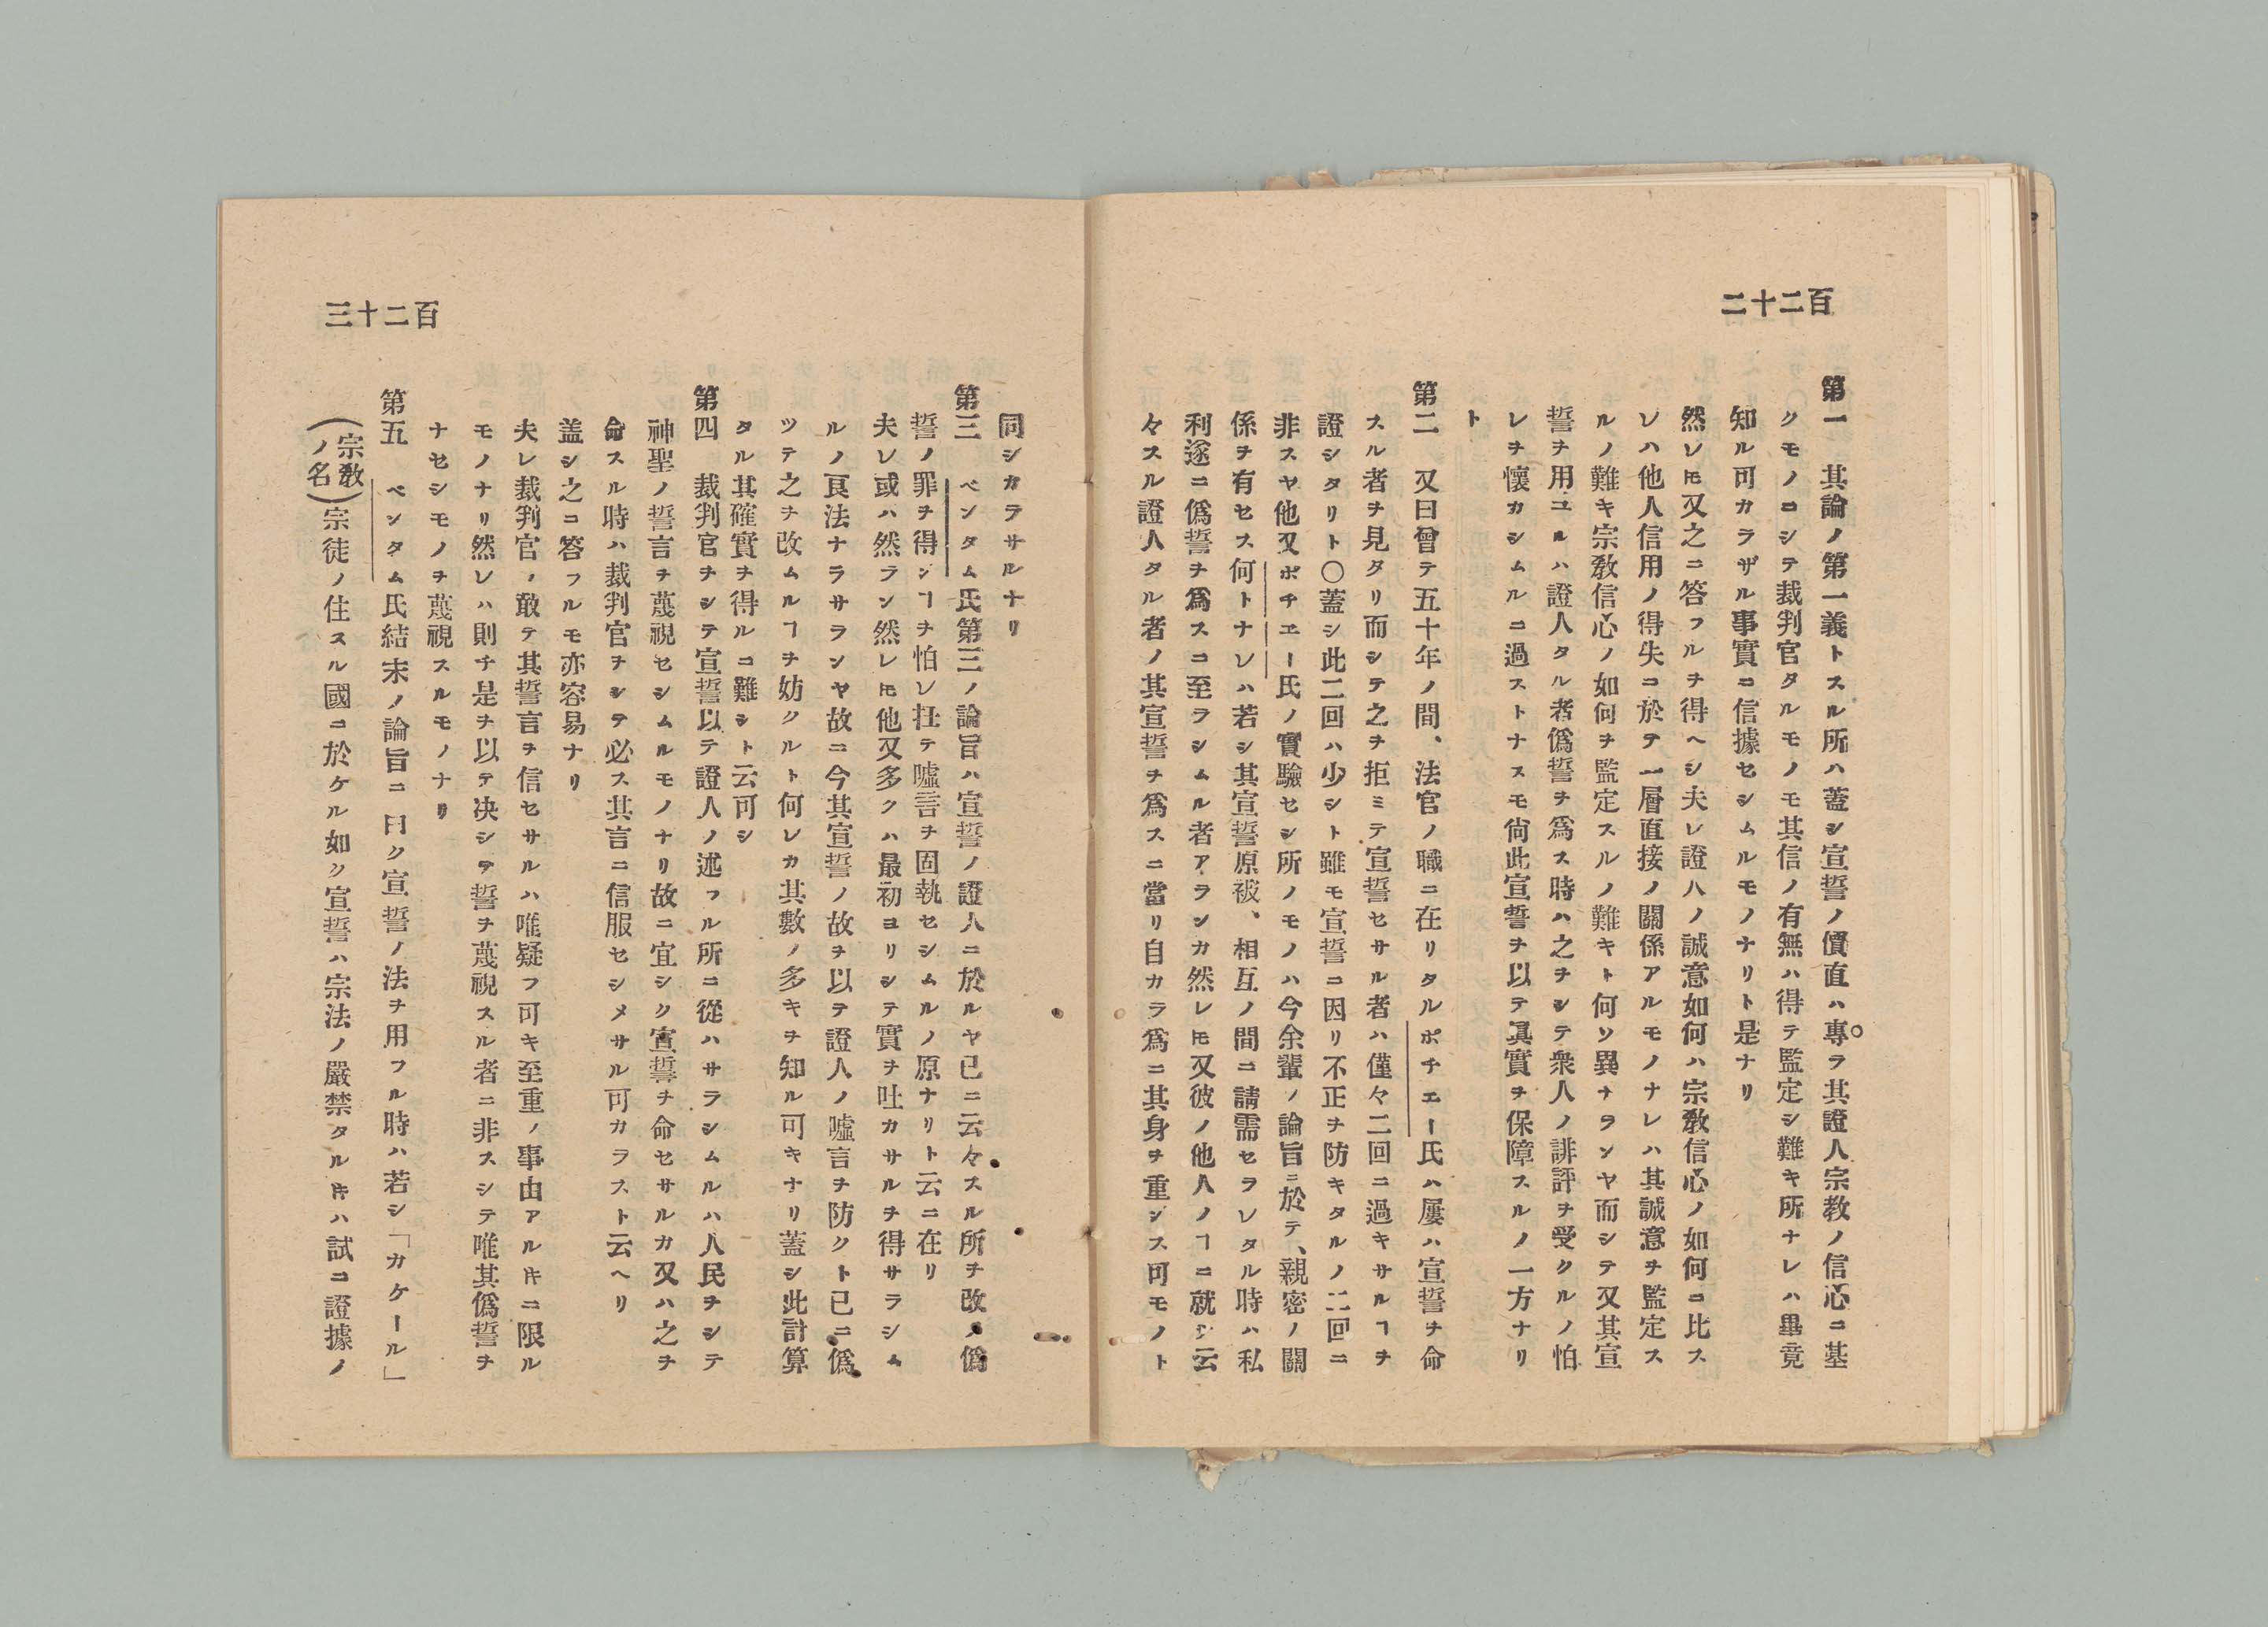 百二十二
第一　其論ノ第一義トスル所ハ蓋シ宣誓ノ價直ハ專ラ其證人宗教ノ信心ニ基
クモノニシテ裁判官タルモノモ其信ノ有無ハ得テ監定シ難キ所ナレハ畢竟
知ル可カラザル事實ニ信據セシムルモノナリト是ナリ
然レ𪜈又之ニ答フルヲ得ヘシ夫レ證人ノ誠意如何ハ宗敎信心ノ如何ニ比ス
レハ他人信用ノ得失ニ於テ一層直接ノ關係アルモノナレハ其誠意ヲ監定ス
ルノ難キ宗敎信心ノ如何ヲ監定スルノ難キト何ソ異ナランヤ而シテ又其宣
誓ヲ用ユルハ證人タル者僞誓ヲ爲ス時ハ之ヲシテ衆人ノ誹評ヲ受クルノ怕
レヲ懷カシムルニ過ストナスモ尙此宣誓ヲ以テ眞實ヲ保障スルノ一方ナリ
ト
第二　又曰曾テ五十年ノ間、法官ノ職ニ在リタルポチエー氏ハ屢ハ宣誓ヲ命
スル者ヲ見タリ而シテ之ヲ拒ミテ宣誓セサル者ハ僅々二回ニ過キサルヿヲ
證シタリト〇蓋シ此二回ハ少シト雖モ宣誓ニ因リ不正ヲ防キタルノ二回ニ
非スヤ他又ポチエー氏ノ實驗セシ所ノモノハ今余輩ノ論旨ニ於テ、親密ノ關
係ヲ有セス何トナレハ若シ其宣誓原被、相互ノ間ニ請需セラレタル時ハ私
利遂ニ僞誓ヲ爲スニ至ラシムル者アランカ然レ𪜈又彼ノ他人ノヿニ就シ云
々スル證人タル者ノ其宣誓ヲ爲スニ當リ自カラ爲ニ其身ヲ重ンス可モノト
百二十三
同シカラサルナリ
第三　ベンタム氏第三ノ論旨ハ宣誓ノ證人ニ於ルヤ已ニ云々スル所ヲ改メ僞
誓ノ罪ヲ得ンヿヲ怕レ抂テ噓言ヲ固執セシムルノ原ナリト云ニ在リ
夫レ或ハ然ラン然レ𪜈他又多クハ最初ヨリシテ實ヲ吐カサルヲ得サラシム
ルノ良法ナラサランヤ故ニ今其宣誓ノ故ヲ以テ證人ノ噓言ヲ防クト已ニ僞
ツテ之ヲ改ムルヿヲ妨クルト何レカ其數ノ多キヲ知ル可キナリ蓋シ此計算
タル其確實ヲ得ルニ難シト云可シ
第四　裁判官ヲシテ宣誓以テ證人ノ述フル所ニ從ハサラシムルハ人民ヲシテ
神聖ノ誓言ヲ蔑視セシムルモノナリ故ニ宜シク宣誓ヲ命セサルカ又ハ之ヲ
命スル時ハ裁判官ヲシテ必ス其言ニ信服セシメサル可カラスト云ヘリ
蓋シ之ニ答フルモ亦容易ナリ
夫レ裁判官ノ敢テ其誓言ヲ信セサルハ唯疑フ可キ至重ノ事由アルキニ限ル
モノナリ然レハ則チ是ヲ以テ决シテ誓ヲ蔑視スル者ニ非スシテ唯其僞誓ヲ
ナセシモノヲ蔑視スルモノナリ
第五　ベンタム氏結末ノ論旨ニ曰ク宣誓ノ法ヲ用フル時ハ若シ「カケール」
（宗敎ノ名）宗徒ノ住スル國ニ於ケル如ク宣誓ハ宗法ノ嚴禁タルキハ試ニ證據ノ